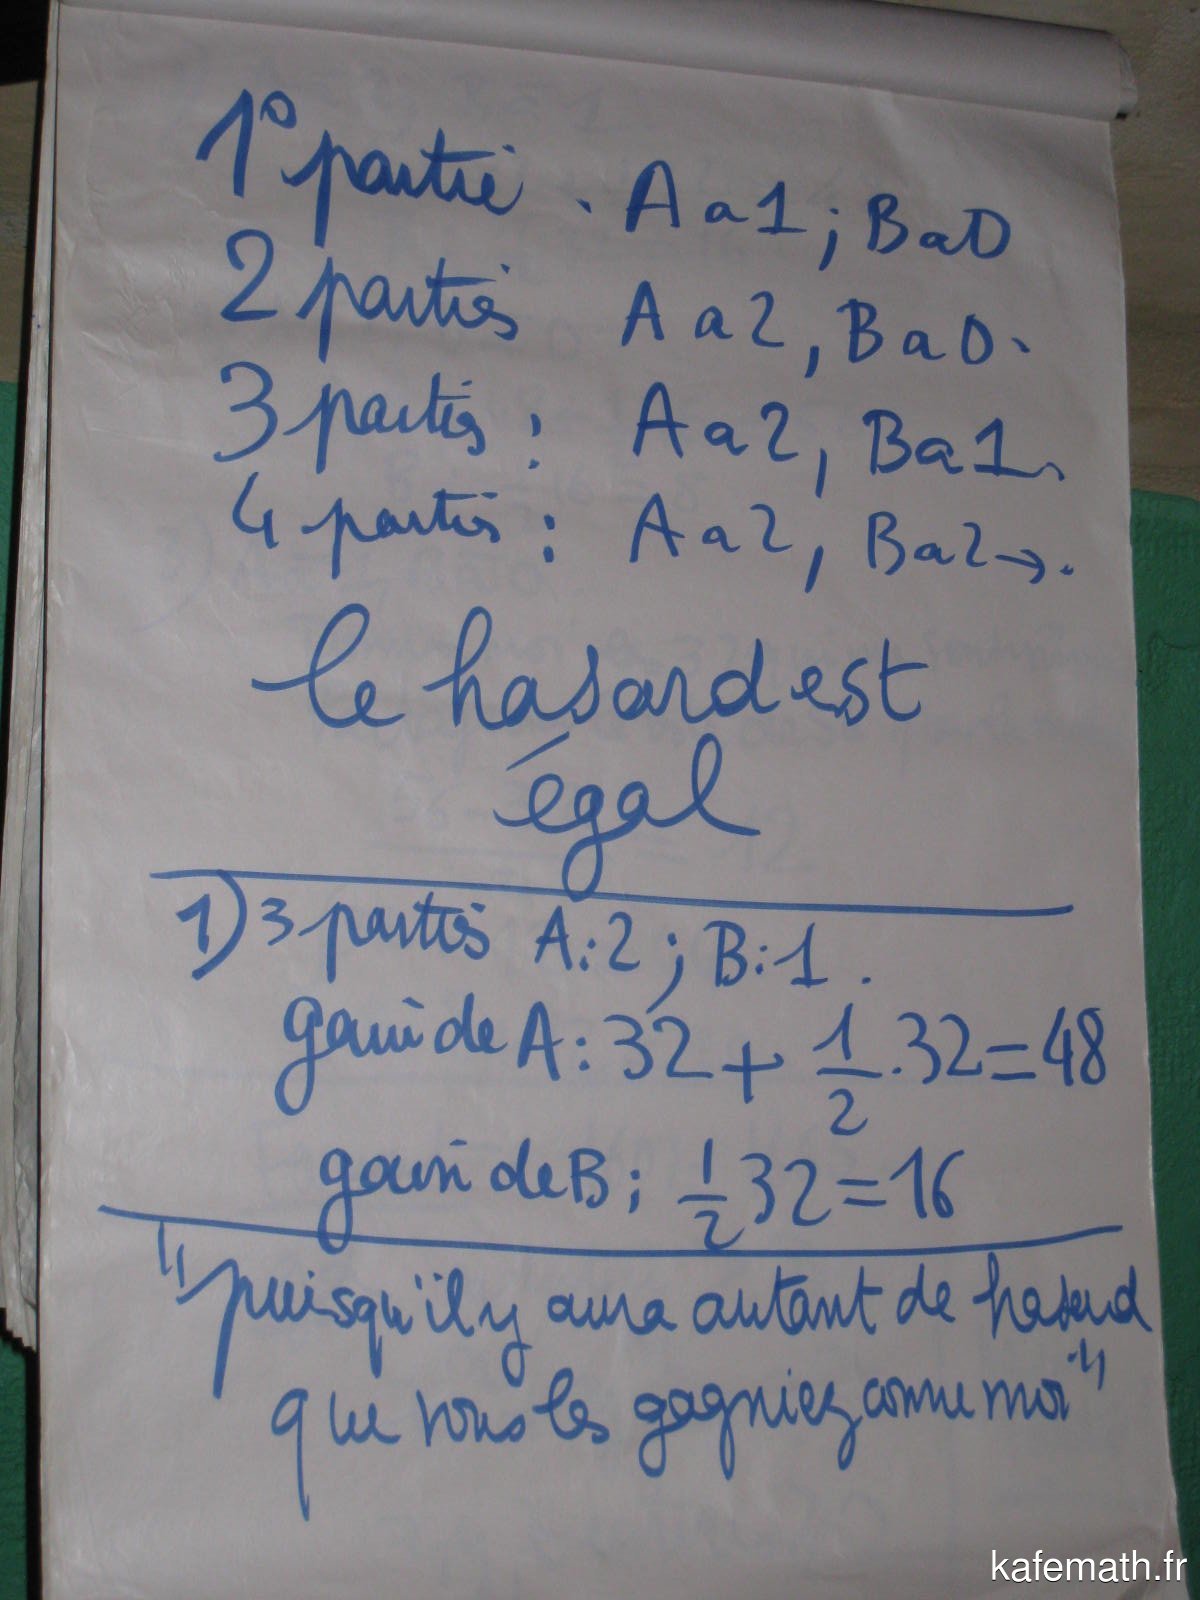 1° partie . A a 1 ; B a 0
2 parties A a 2 , B a 0 .
3 parties : A a 2 , B a 1 .
4 parties : A a 2 , B a 2 → .
le hasard est
égal
1) 3 parties A : 2 ; B : 1 .
gain de A : 32 + 1/2 . 32 = 48
gain de B ; 1/2 32 = 16
"puisqu'il y aura autant de hasard
que vous les gagniez comme moi"
kafemath.fr